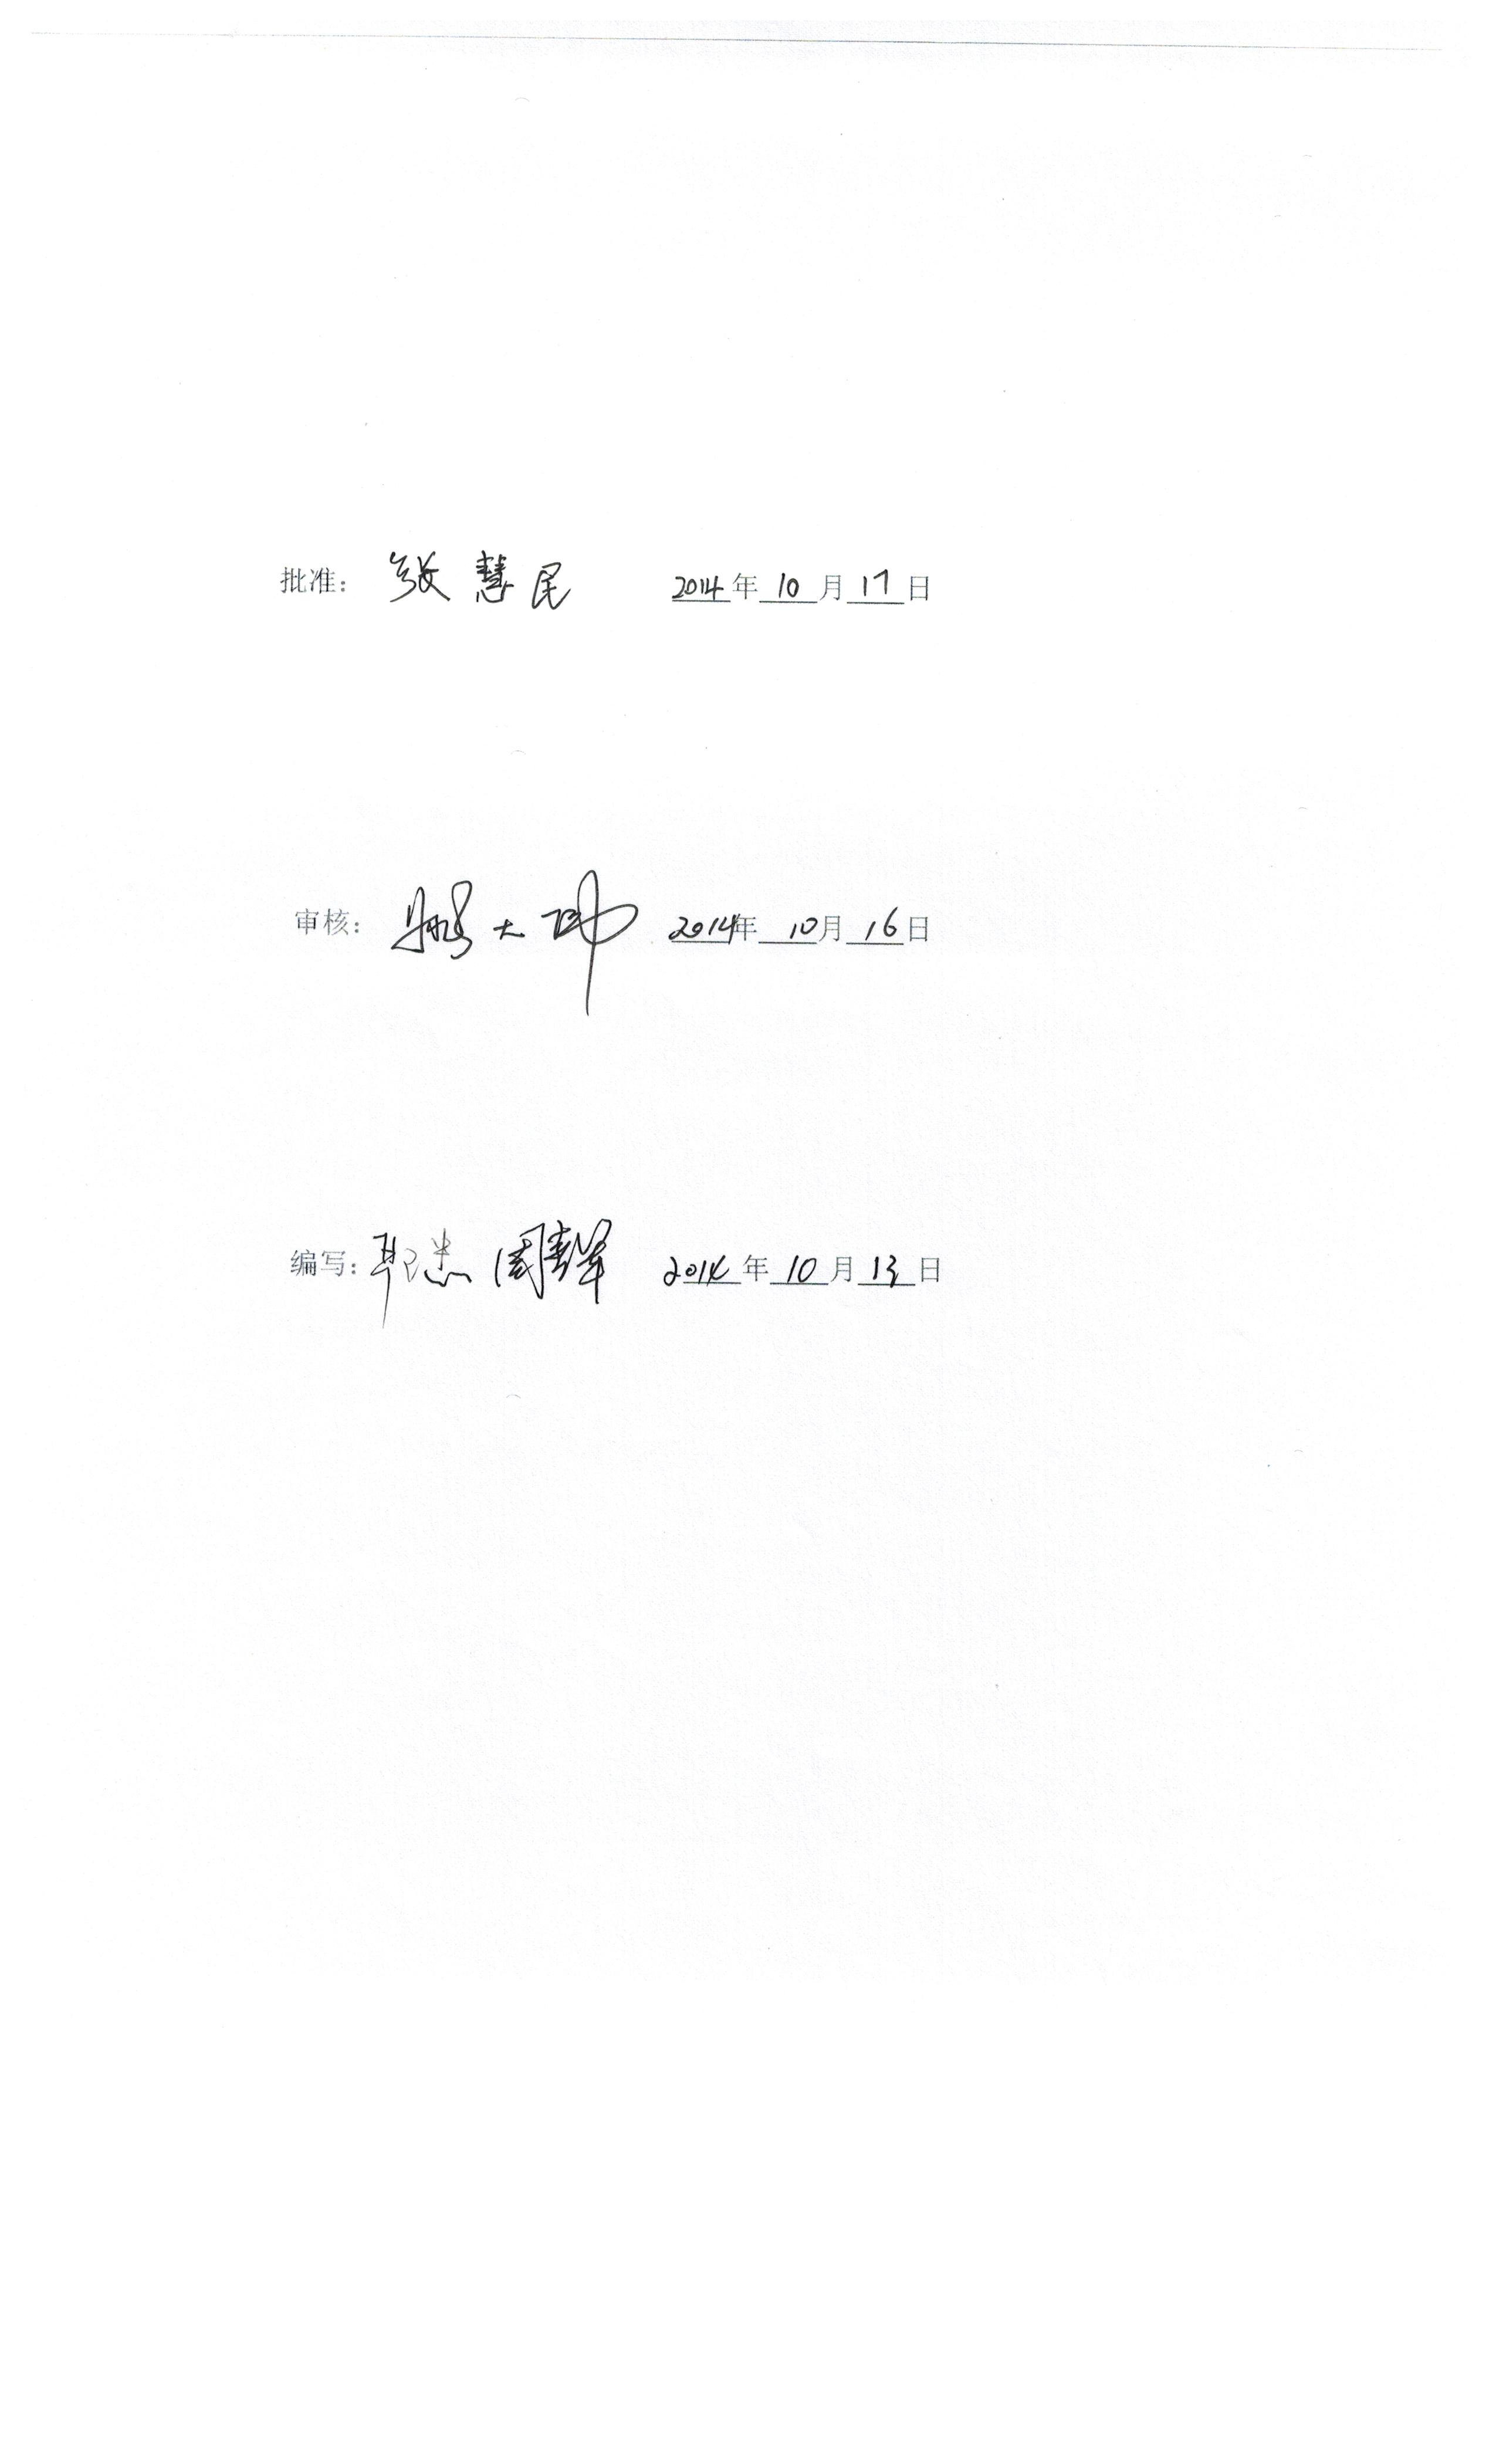 批准: 张慧民 2014年10月17日
审核: 大 2014年10月16日
编写: 周 2014年10月13日